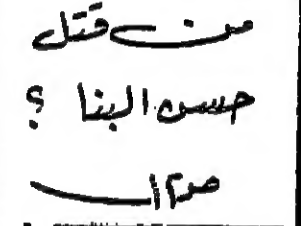 من قتل
حسن البنا ؟